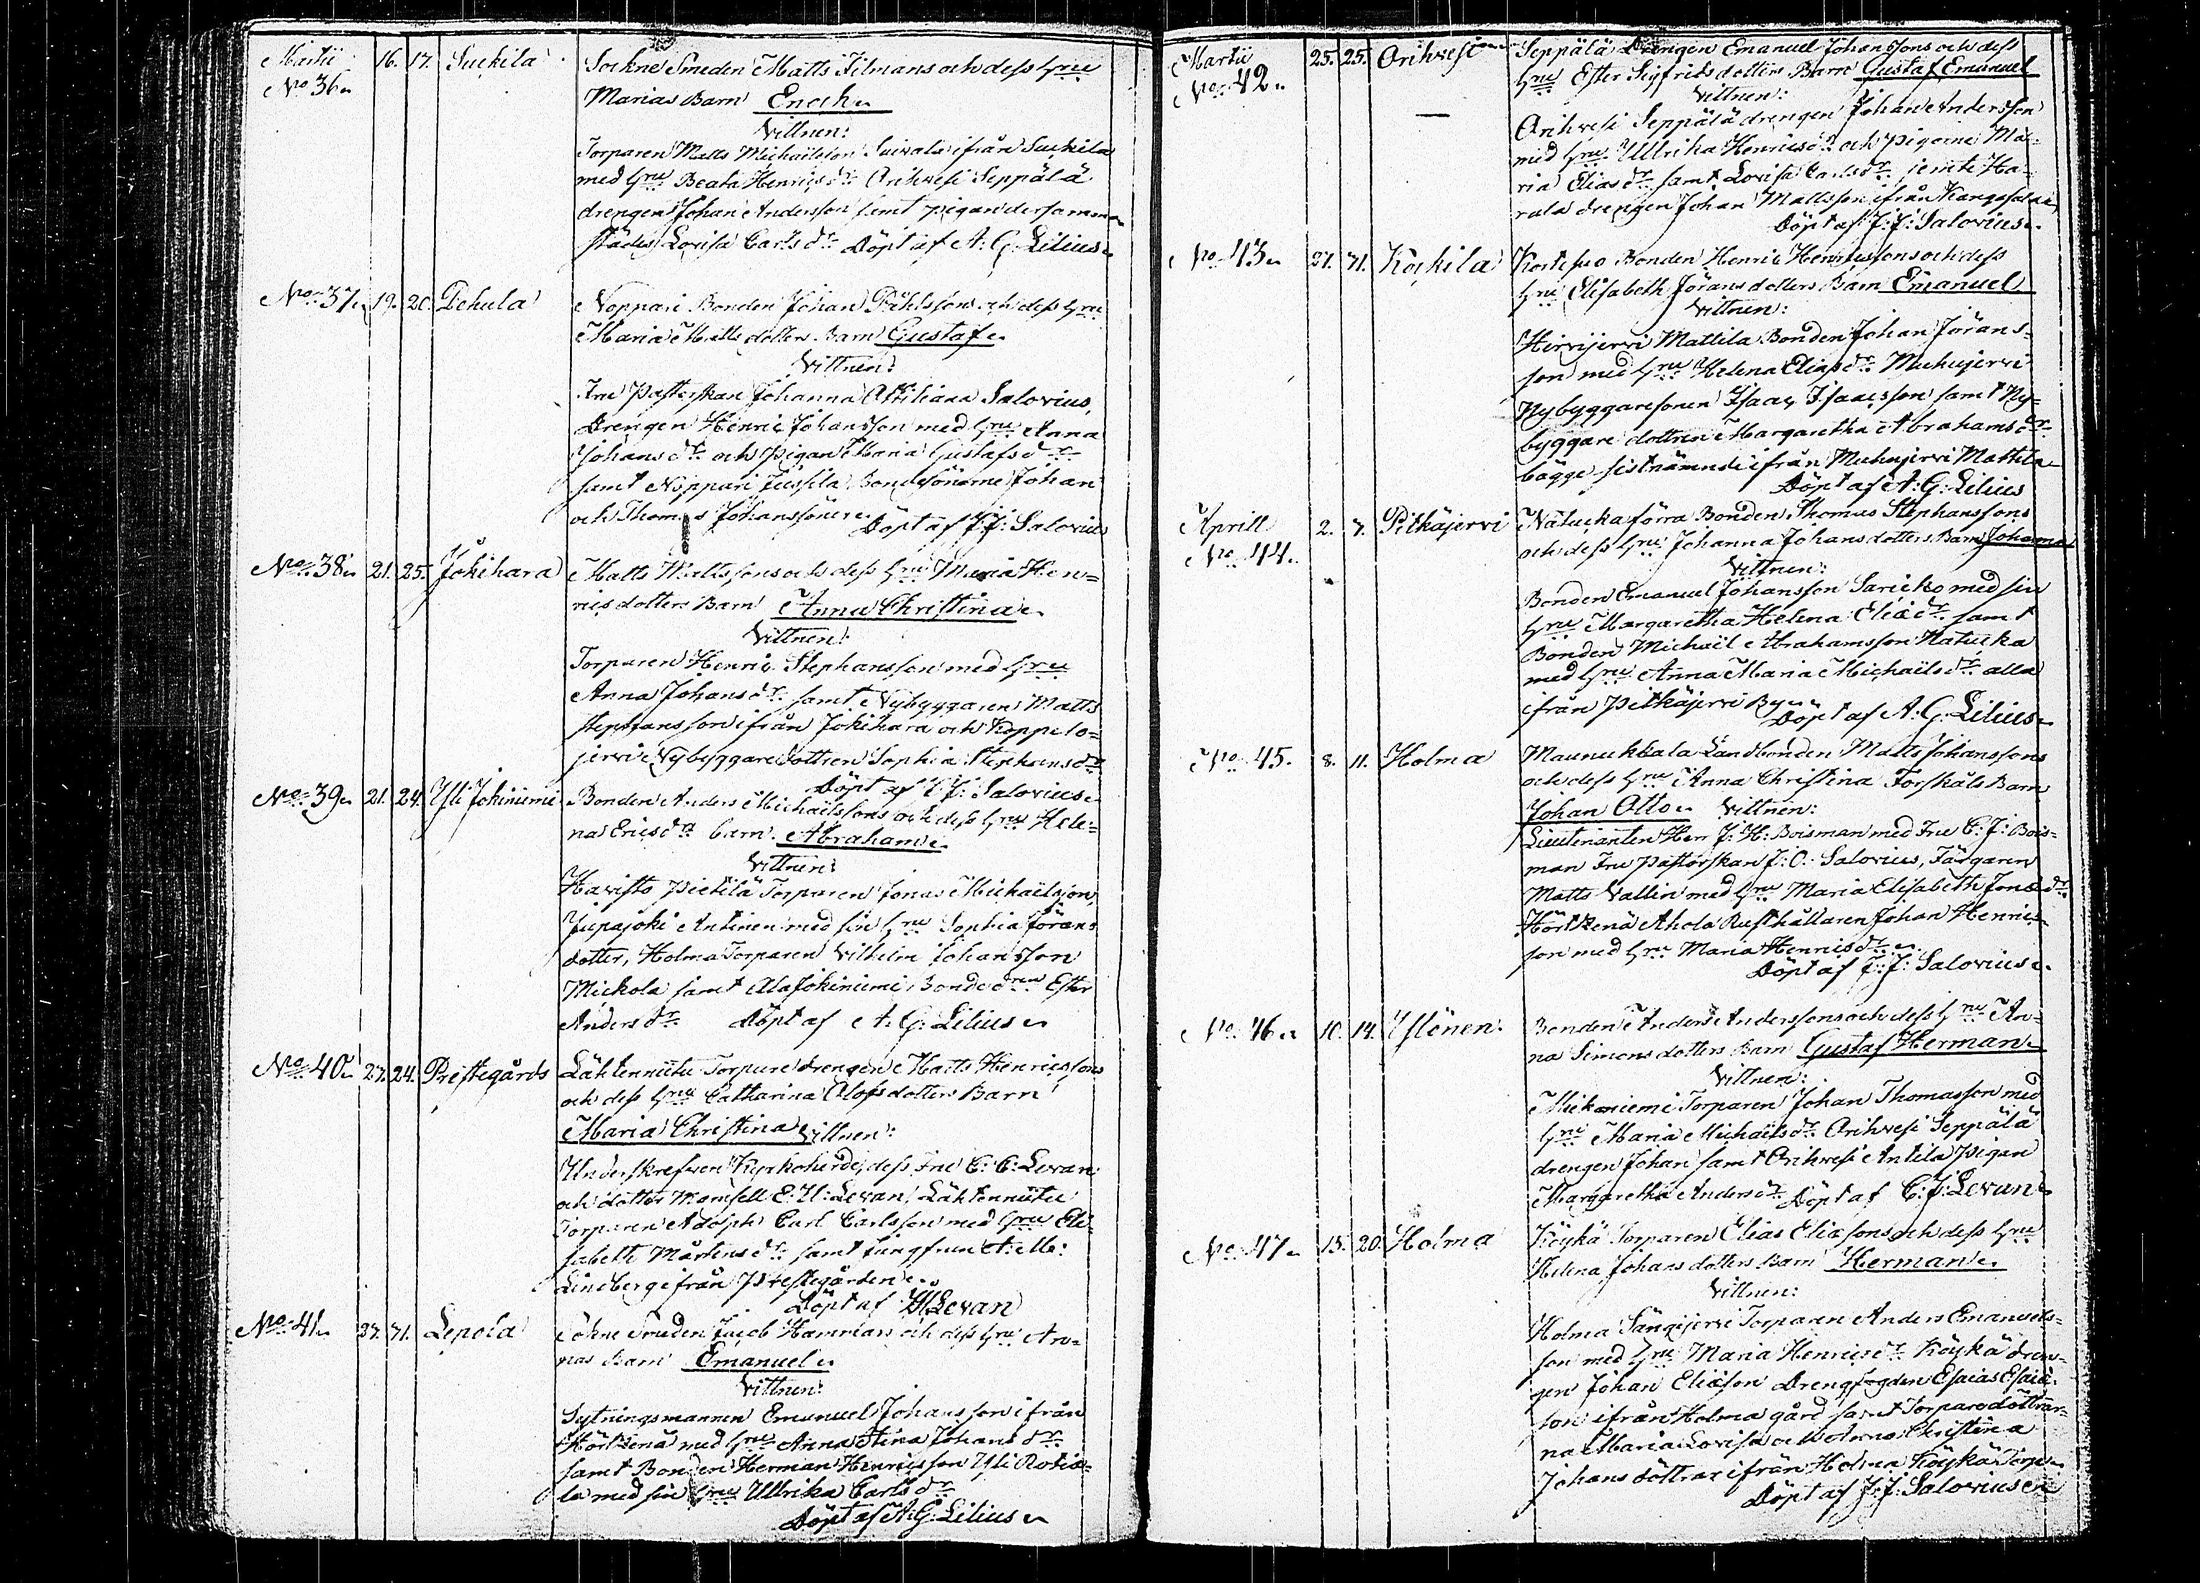 Martii 16. 17. Suckila Sockne Smeden Matts Tilmans och dess Hru
No 36. Marias Barn Enoch.
Vittnen:
Torparen Matts Michaelsson ifrån Suckila
med Hru Beata Henrics dr. Orihvesi Seppälä
drengen Johan Andersson samt pigan dersamma
städes Lovisa Carls dr. Döpt af A: G: Lilius.
No 37. 19. 20. Pehula Noppari Bonden Johan Påhlssons och dess Hru
Maria Matts dotters Barn Gustaf.
Vittnen:
Fru Pastorskan Johanna Salovius,
Drengen Henric Johansson med Hru Anna
Johans dr. och Pigan Maria Gustafs dr.
samt Noppari Jussila Bondesönerne Johan
och Thomas Johanssöner. Döpt af J: J: Salovius
No 38. 21. 25. Jokihara Matts Mattssons och dess Hru Maria Hen=
rics dotters Barn Anna Christina.
Vittnen:
Torparen Henric Stephansson med Hru
Anna Johans dr. samt Nybyggaren Matts
Stephansson ifrån Jokihara och Koppelo=
jervi Nybyggare dottren Sophia Stephans dr.
Döpt af J: J: Salovius.
No 39. 21. 24. Yli Jokiniemi Bonden Anders Michaelssons och dess Hru Hele=
na Erics dr. barn. Abraham.
Vittnen:
Havisto Pietilä Torparen Jonas Michaelsson,
Jupajoki Antinen med sin Hru Sophia Jörans
dotter, Holma Torparen Vilhelm Johansson
Mickola samt Ala Jokiniemi Bonde dren Ester
Anders dr. Döpt af A: G: Lilius.
No 40. 23. 24. Prestegårds Lähtenniitu Torpare drengen Matts Henricssons
och dess Hru Catharina Olofs dotters Barn
Maria Christina. Vittnen:
Underskrefven Kyrkoherde, dess Fru C: C: Levan
och dotter Mamsell E: U: Levan, Lähtenniitu
Torparen Adolph Carl Carlsson med Hru Eli=
sabeth Mårtens dr. samt Jungfrun
Lindberg ifrån Prestegården.
Döpt af Levan
No 41. 27. 31. Lepola Sokne Smeden Jacob Hammars och dess Hru An=
nas Barn Emanuel.
Vittnen:
Sytningsmannen Emanuel Johansson ifrån
Hörtsenä med Hru Anna Stina Johans dr.
samt Bonden Herman Henricsson Yli Rotia=
la med sin Hru Ullrika Carls dr.
Döpt af A: G: Lilius.
Martii 25. 25. Orihvesi Seppälä Drengen Emanuel Johanssons och dess
No 42. Hru Ester Sigfrids dotters Barn Gustaf Emanuel
Vittnen:
Orihvesi Seppälä drengen Johan Andersson
med Hru Ullrika Henrics dr. och Pigorne Ma=
ria Elias dr. samt Lovisa Carls dr. jemte Ha=
rala drengen Johan Mattsson ifrån Kangasala.
Döpt af J: J: Salovius.
No 43. 27. 31. Kockila Bonden Henric Henricssons och dess
Hru Elisabeth Jörans dotters Barn Emanuel
Vittnen:
Hirvijervi Mattila Bonden Johan Jörans=
son med Hru Helena Elias dr. Muhujervi
Nybyggaresonen Isaac Isaacsson samt Ny=
byggare dottren Margaretha Abrahams dr.
bägge sistnämnde ifrån Muhujervi Mattila
Döpt af A: G: Lilius
Aprill 2. 7. Pitkäjervi Natucka förra Bonden Thomas Stephanssons
No 44. och dess Hru Johanna Johans dotters Barn Johanna
Vittnen:
Bonden Emanuel Johansson med sin
Hru Margaretha Helena Elias dr. samt
Bonden Michaël Abrahamsson Natucka
med Hru Anna Maria Michaëls dr. alla
ifrån Pitkäjervi By.
Döpt af A: G: Lilius.
No 45. 8. 11. Holma Maunukkala Landbonden Matts Johanssons
och dess Hru Anna Christina Forskåls Barn
Johan Otto. Vittnen:
Lieutenanten Herr J: H: Boisman med Fru C: J: Bois=
man Fru Pastorskan J: O: Salovius, Färgaren
Matts Vallin med Hru Maria Elisabeth Jons dr.
Hörtsenä Ahola Rusthållaren Johan Henrics=
son med Hru Maria Henrics dr.
Döpt af J: J: Salovius.
No 46. 10. 14. Ylönen. Bonden Anders Anderssons och dess Hru An=
na Simons dotters Barn Gustaf Herman.
Vittnen:
Torparen Johan Thomasson med
Hru Maria Michaëls dr. Orihvesi Seppälä
drengen Johan samt Orihvesi Antila Pigan
Margaretha Anders dr. Döpt af C: J: Levan.
No 47. 15. 20. Holma Köykä Torparen Elias Eliasons och dess Hru
Helena Johans dotters Barn Herman.
Vittnen:
Holma Sänqijervi Torparen Anders Emanuels=
son med Hru Maria Henrics dr. Köykä dren=
gen Johan Eliason Drengfogden Esaias Esaia=
son ifrån Holma gård samt Torparedöttrar=
na Maria Lovisa och Anna Christina
Johans döttrar ifrån Holma Köykä Torp.
Döpt af J: J: Salovius.